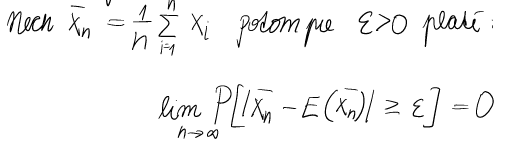 Nech X̄ₙ = 1/n ∑ᵢ₌₁ⁿ Xᵢ potom pre ε>0 platí :
lim_{n→∞} P[|X̄ₙ - E(X̄ₙ)| ≥ ε] = 0